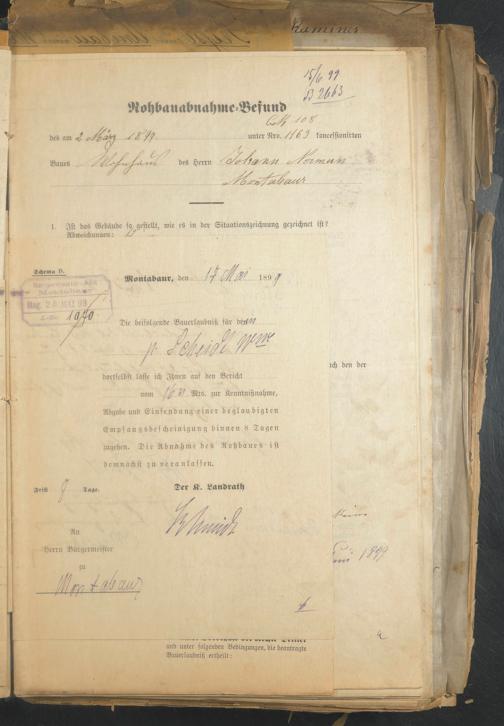 15/6 99
B 2663
Rohbauabnahme-Befund
des am 2 März 1899 unter Nro. 1163 konzessionirten
Baues Wohnhaus des Herrn Johann
Montabaur
1. Ist das Gebäude so gestellt, wie es in der Situationszeichnung gezeichnet ist?
Abweichungen:
Schema D.
Montabaur, den 17 Mai 1899
1970
Die beifolgende Bauerlaubniß für den
p. Scheidt
dortselbst lasse ich Ihnen auf den Bericht
vom 16 Mts. zur Kenntnißnahme,
Abgabe und Einsendung einer beglaubigten
Empfangsbescheinigung binnen 8 Tagen
zugehen. Die Abnahme des Rohbaues ist
demnächst zu veranlassen.
Frist 8 Tage.
Der K. Landrath
Schmidt
An
Herrn Bürgermeister
zu
Montabaur
ch den der
Juni 1899
und unter folgenden Bedingungen, die beantragte
Bauerlaubniß ertheilt: